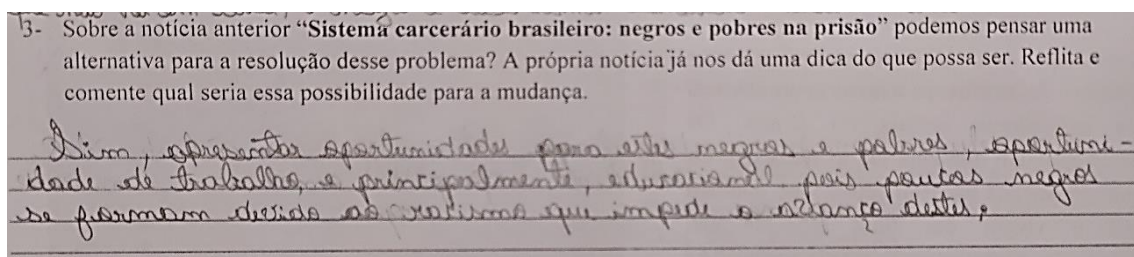 3- Sobre a notícia anterior “Sistema carcerário brasileiro: negros e pobres na prisão” podemos pensar uma
alternativa para a resolução desse problema? A própria notícia já nos dá uma dica do que possa ser. Reflita e
comente qual seria essa possibilidade para a mudança.
Sim, apresentar oportunidades para estes negros e pobres, oportuni-
dade de trabalho, e principalmente, educacional pois poucos negros
se formam devido ao racismo que impede o destes.